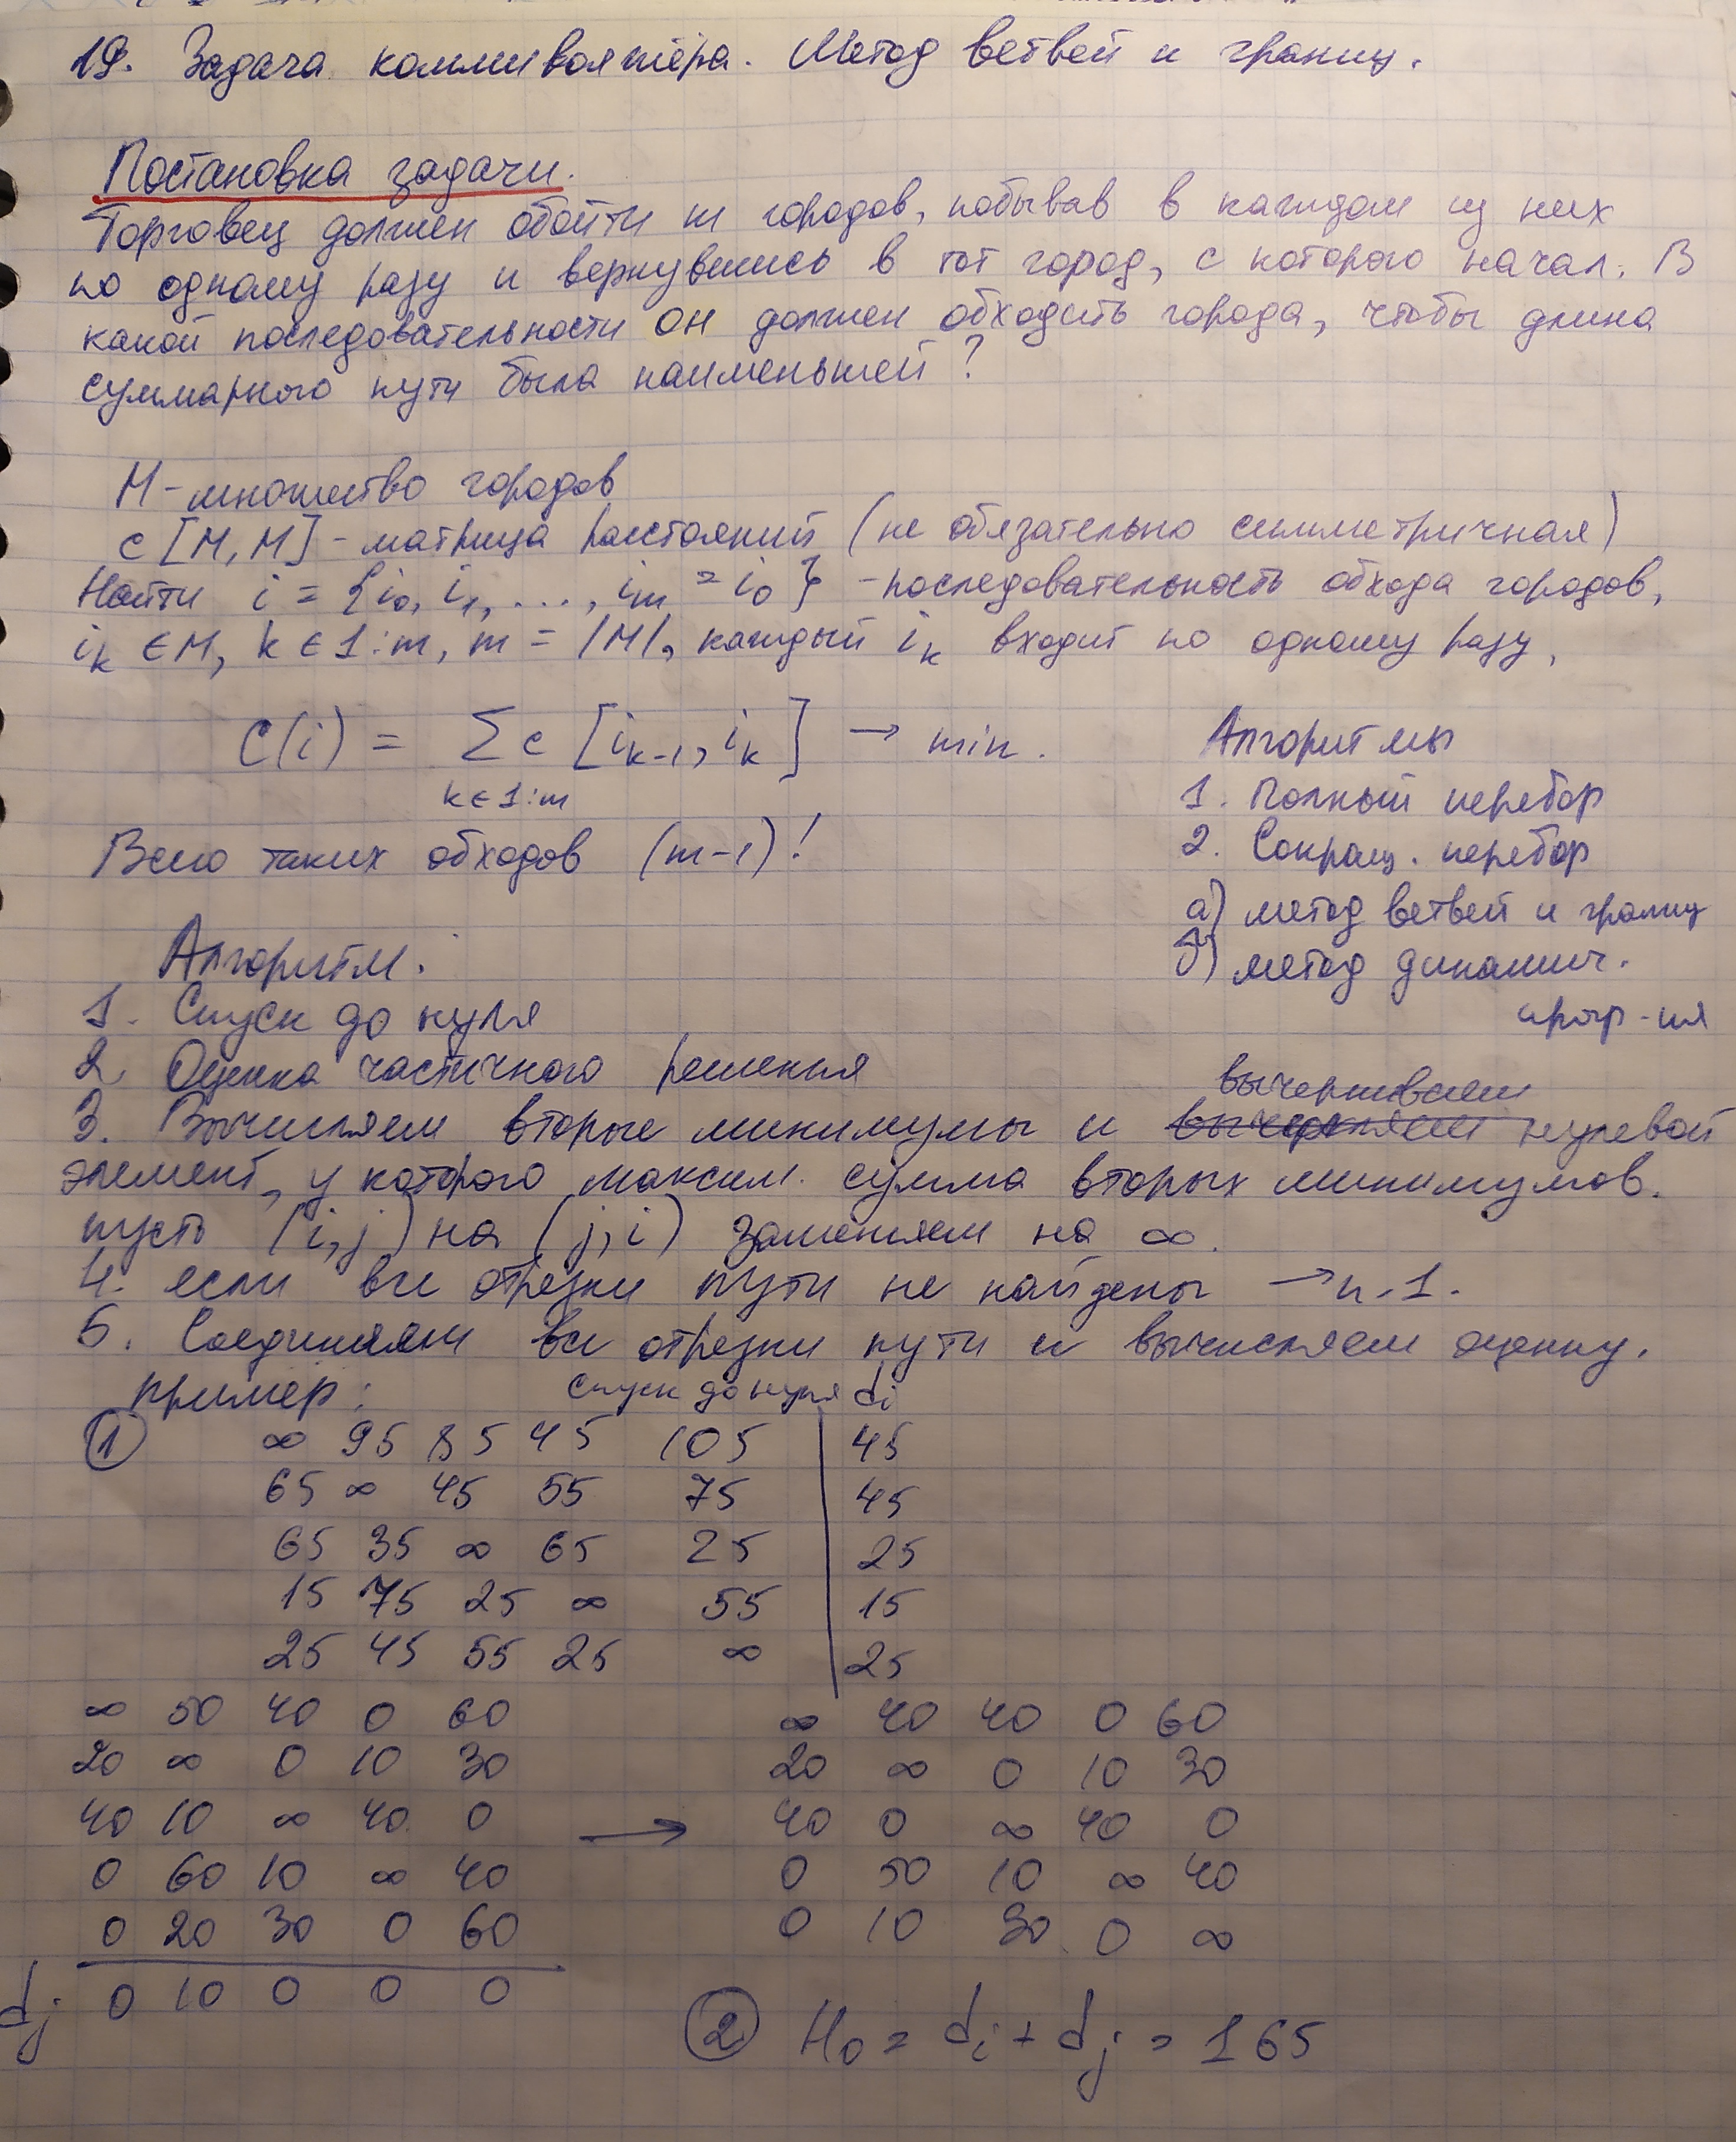 19. Задача коммивояжёра. Метод ветвей и границ.
Постановка задачи.
Торговец должен обойти m городов, побывав в каждом из них
по одному разу и вернувшись в тот город, с которого начал. В
какой последовательности он должен обходить города, чтобы длина
суммарного пути была наименьшей?
M - множество городов
c [M, M] - матрица расстояний (не обязательно симметричная)
Найти i = {i₀, i₁, ..., iₘ = i₀} - последовательность обхода городов,
iₖ ∈ M, k ∈ 1:m, m = |M|, каждый iₖ входит по одному разу,
C(i) = Σ c [iₖ₋₁, iₖ] → min.
k ∈ 1:m
Всего таких обходов (m-1)!
Алгоритмы
1. Полный перебор
2. Сокращ. перебор
а) метод ветвей и границ
б) метод динамич.
прогр-ия
Алгоритм.
1. Спуск до нуля
2. Оценка частичного решения
3. Вычисляем вторые минимумы и вычеркиваем нулевой
элемент, у которого максим. сумма вторых минимумов.
пусть (i, j) на (j, i) заменяем на ∞.
4. если все отрезки пути не найдены → п. 1.
5. Соединяем все отрезки пути и вычисляем оценку.
пример: спуск до нуля dᵢ
① ∞ 95 85 45 105 | 45
65 ∞ 45 55 75 | 45
65 35 ∞ 65 25 | 25
15 75 25 ∞ 55 | 15
25 45 55 25 ∞ | 25
∞ 50 40 0 60
20 ∞ 0 10 30
40 10 ∞ 40 0
0 60 10 ∞ 40
0 20 30 0 60
dⱼ 0 10 0 0 0
→
∞ 40 40 0 60
20 ∞ 0 10 30
40 0 ∞ 40 0
0 50 10 ∞ 40
0 10 30 0 ∞
② H₀ = dᵢ + dⱼ = 165